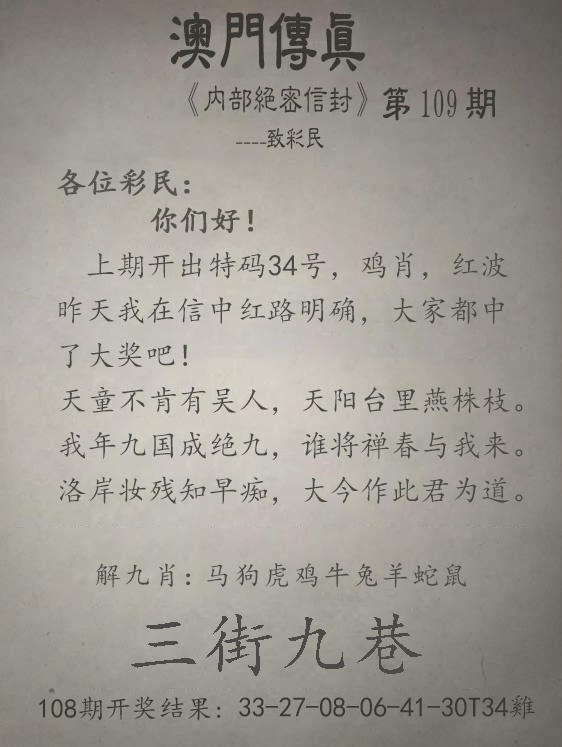 澳門傳眞
《内部絕密信封》第109期
----致彩民
各位彩民：
你们好！
上期开出特码34号，鸡肖，红波
昨天我在信中红路明确，大家都中
了大奖吧！
天童不肯有吴人，天阳台里燕株枝。
我年九国成绝九，谁将禅春与我来。
洛岸妆残知早痴，大今作此君为道。
解九肖：马狗虎鸡牛兔羊蛇鼠
三街九巷
108期开奖结果：33-27-08-06-41-30T34雞